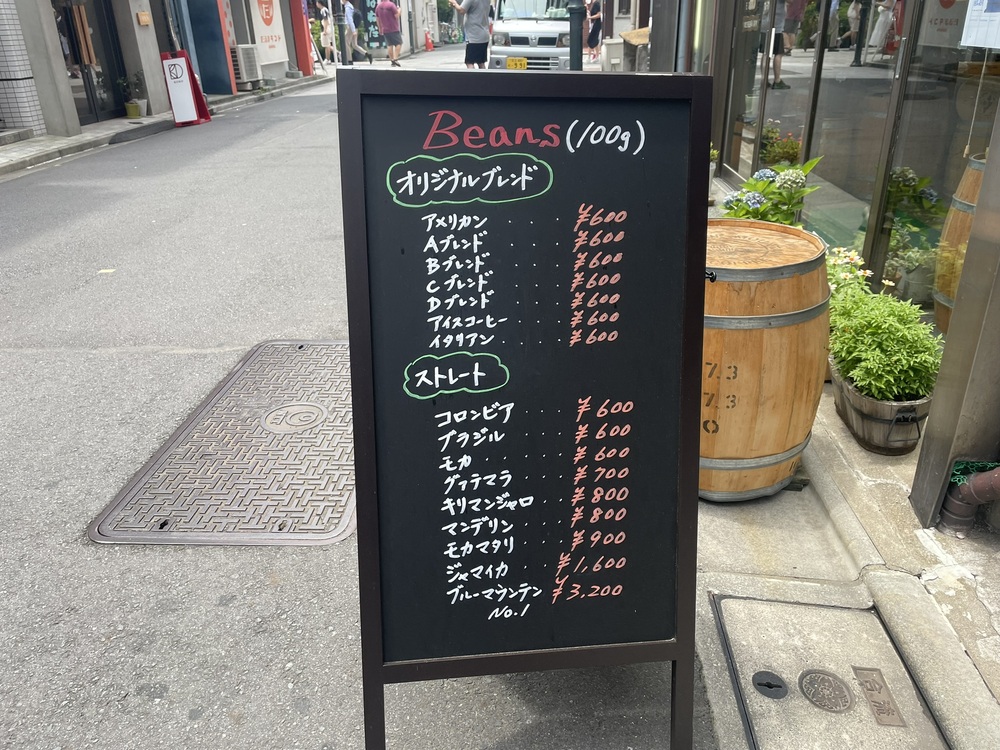 Beans (100g)
オリジナルブレンド
アメリカン ････ ¥600
Aブレンド ････ ¥600
Bブレンド ････ ¥600
Cブレンド ････ ¥600
Dブレンド ････ ¥600
アイスコーヒー ･･･ ¥600
イタリアン ････ ¥600
ストレート
コロンビア ････ ¥600
ブラジル ････ ¥600
モカ ･････ ¥600
グァテマラ ････ ¥700
キリマンジャロ ･･･ ¥800
マンデリン ････ ¥800
モカマタリ ････ ¥900
ジャマイカ ･･･ ¥1,600
ブルーマウンテン ¥3,200
No.1
7.3
7.3